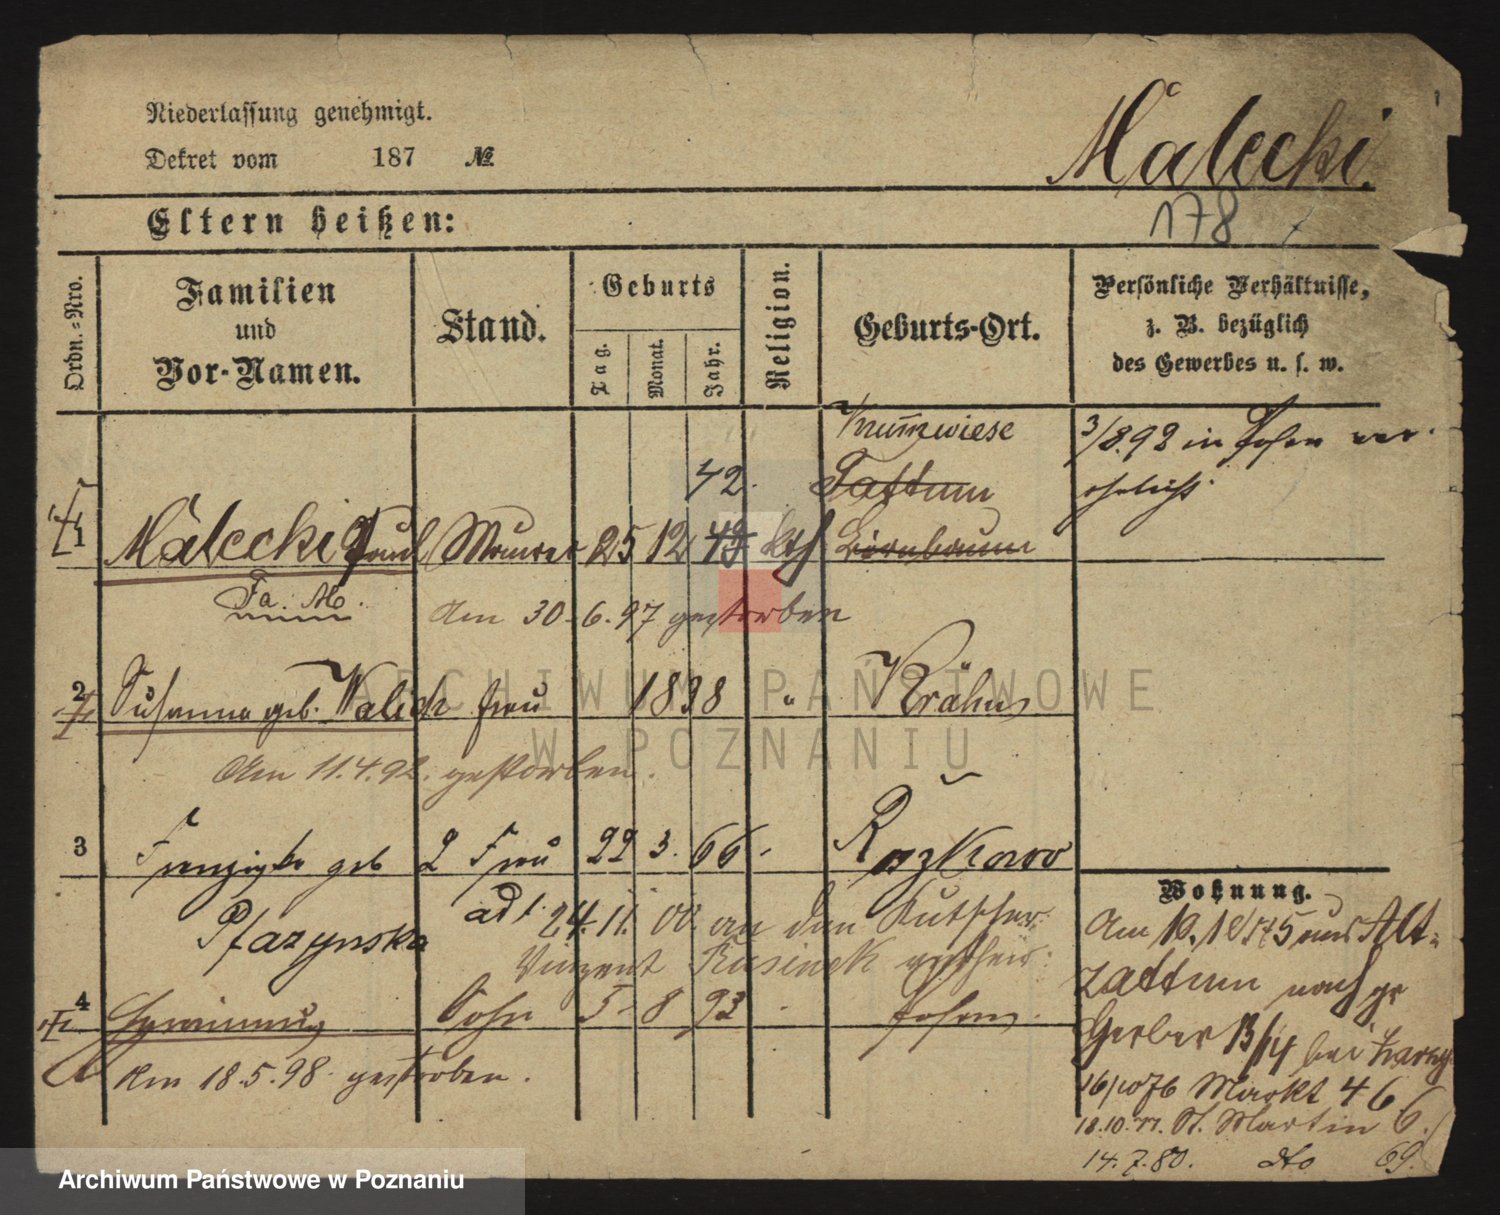 Niederlassung genehmigt.
Malecki.
Dekret vom 187 №
Eltern heißen:
178
Ordn.-Nro.
Familien
und
Vor-Namen.
Stand.
Geburts
Tag.
Monat.
Jahr.
Religion.
Geburts-Ort.
Persönliche Verhältnisse,
z. B. bezüglich
des Gewerbes u. s. w.
3/8.92 in Posen ver-
ehelicht
42.
Tattum
1 Malecki Paul Maurer 25 12 43 kth Birnbaum
Fa. M.
Am 30.6.97 gestorben
2 Susanna geb. Walich Frau 1838 " Krähn
Am 11.4.92. gestorben.
3 Franziska geb 2 Frau 22 3. 66. Roszkowo
Pfazynska
24.11.00. an den Kutscher
Vinzent Kusinek verheir:
4 Sohn 5 8 93 Posen.
Am 18.5.98. gestorben.
Wohnung.
Am 10. 75 aus Alt-
zattum nach gr
Gerber 13/14 bei
16/10 76 Markt 46
18.10.77. St. Martin 6.
14.7.80. dto 69.
Archiwum Państwowe w Poznaniu
ARCHIWUM PAŃSTWOWE
W POZNANIU